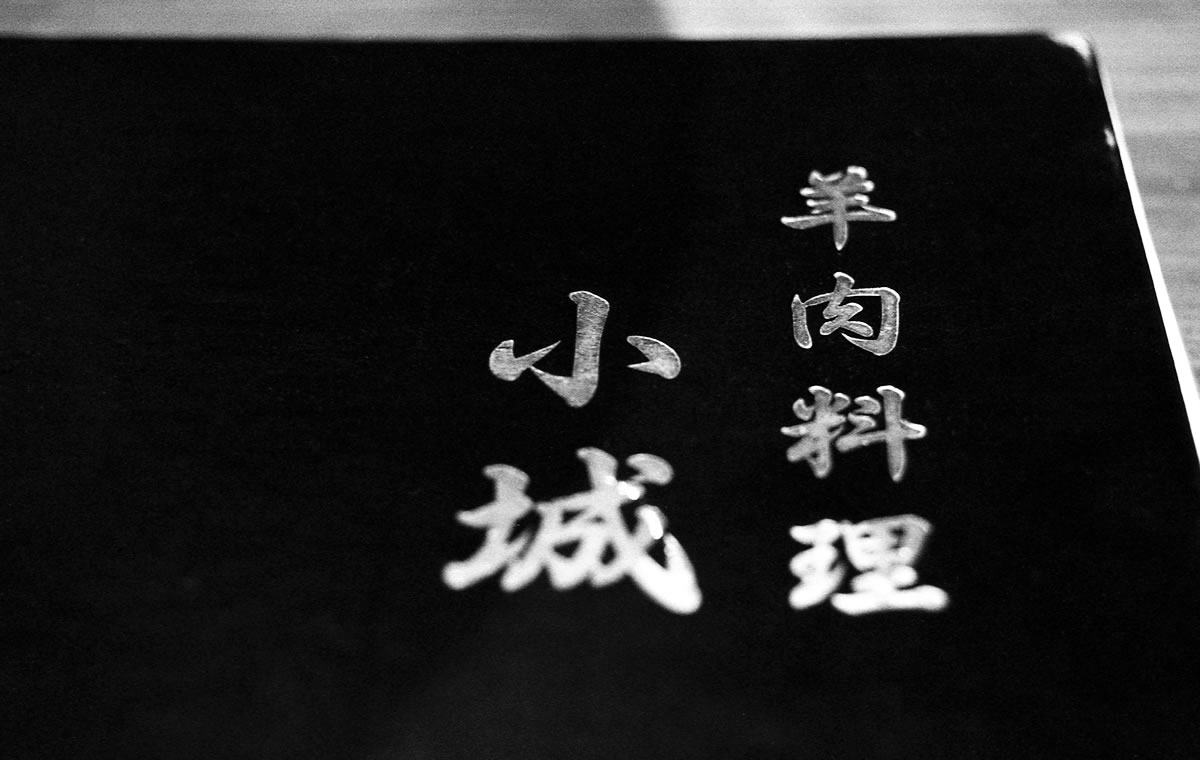 羊肉料理
小城